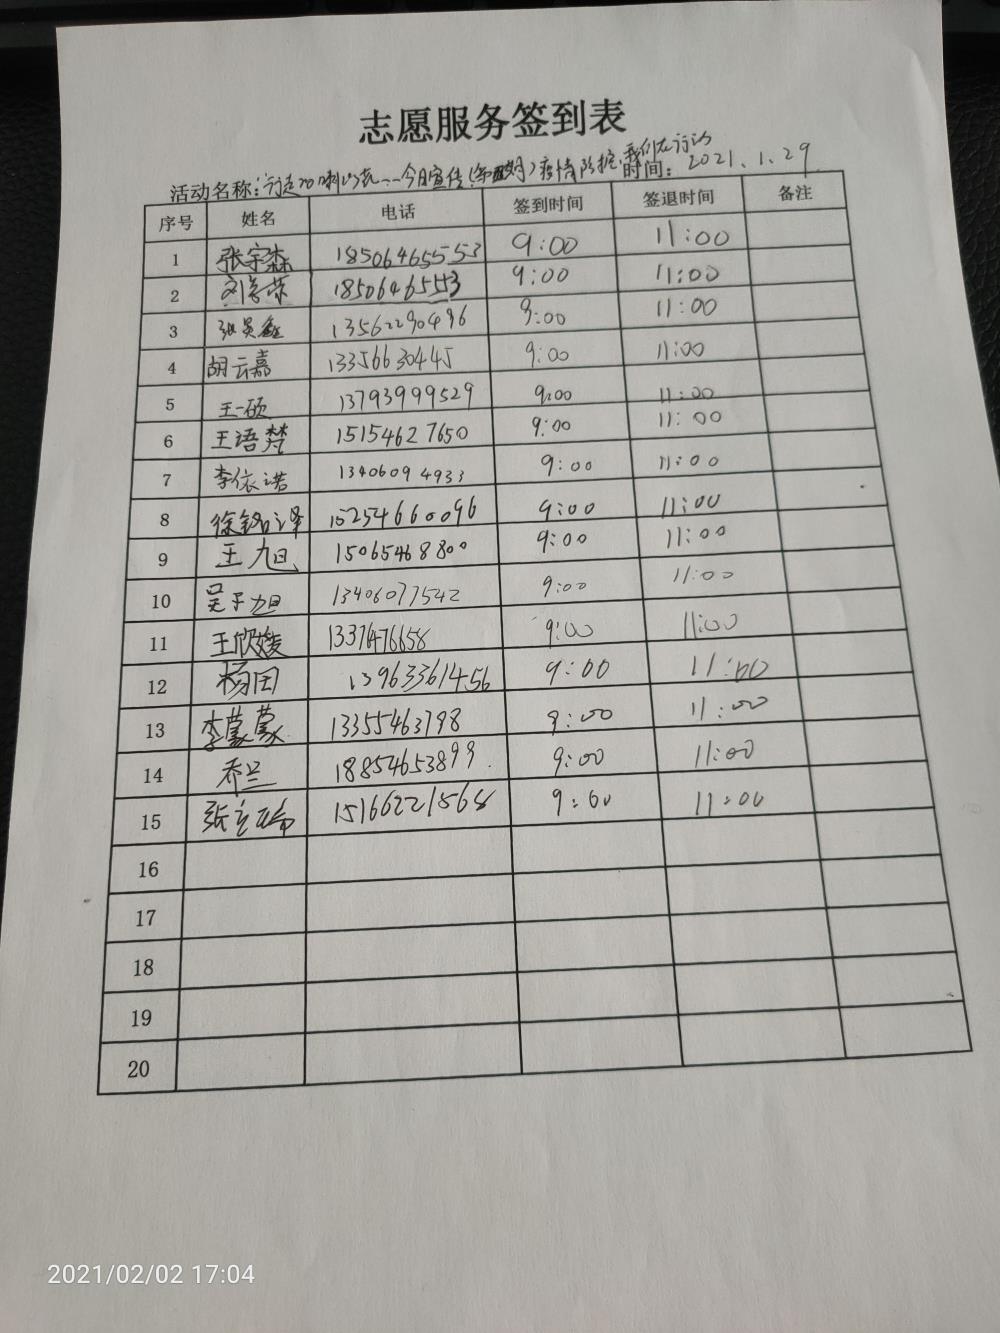 志愿服务签到表
活动名称：行走的小喇叭……今日宣传（第 期）疫情防控，我们在行动 时间：2021.1.29
序号 姓名 电话 签到时间 签退时间 备注
1 张宇森 18506465553 9:00 11:00
2 18506465553 9:00 11:00
3 张昊鑫 13562290496 9:00 11:00
4 胡云嘉 13356630445 9:00 11:00
5 王一硕 13793999529 9:00 11:00
6 王语梵 15154627650 9:00 11:00
7 李依诺 13406094933 9:00 11:00
8 徐铭泽 15254660096 9:00 11:00
9 王旭 15065468800 9:00 11:00
10 吴于旭 13406077542 9:00 11:00
11 王欣媛 13376476658 9:00 11:00
12 杨田 13963361456 9:00 11:00
13 李蒙蒙 13355463798 9:00 11:00
14 乔兰 18854653899 9:00 11:00
15 15166221568 9:00 11:00
16
17
18
19
20
2021/02/02 17:04